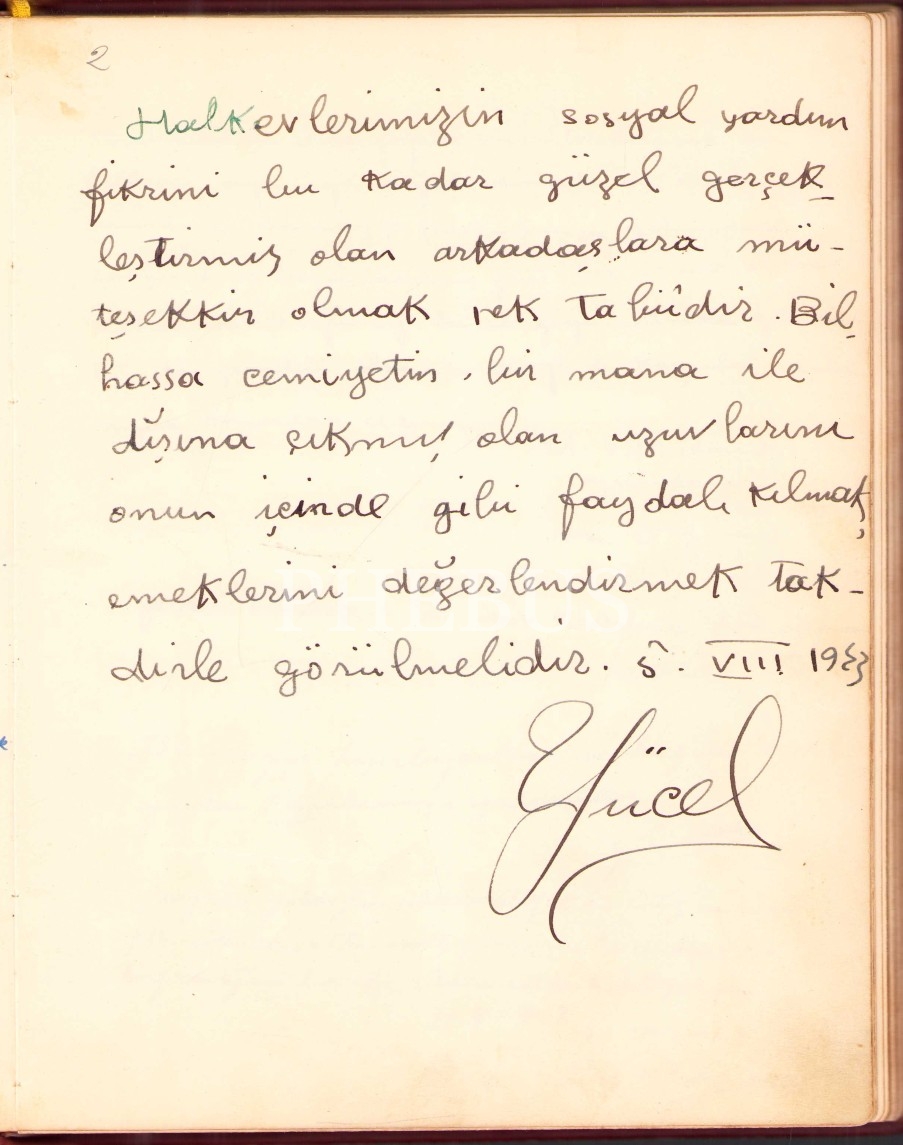 2
Halkevlerimizin sosyal yardım
fikrini bu kadar güzel gerçek-
leştirmiş olan arkadaşlara mü-
teşekkir olmak pek tabiîdir. Bil-
hassa cemiyetin bir mana ile
dışına çıkmış olan uzuvlarını
onun içinde gibi faydalı kılmak,
emeklerini değerlendirmek tak-
dirle görülmelidir. 5. VIII 1943
PHEBUS
Yücel